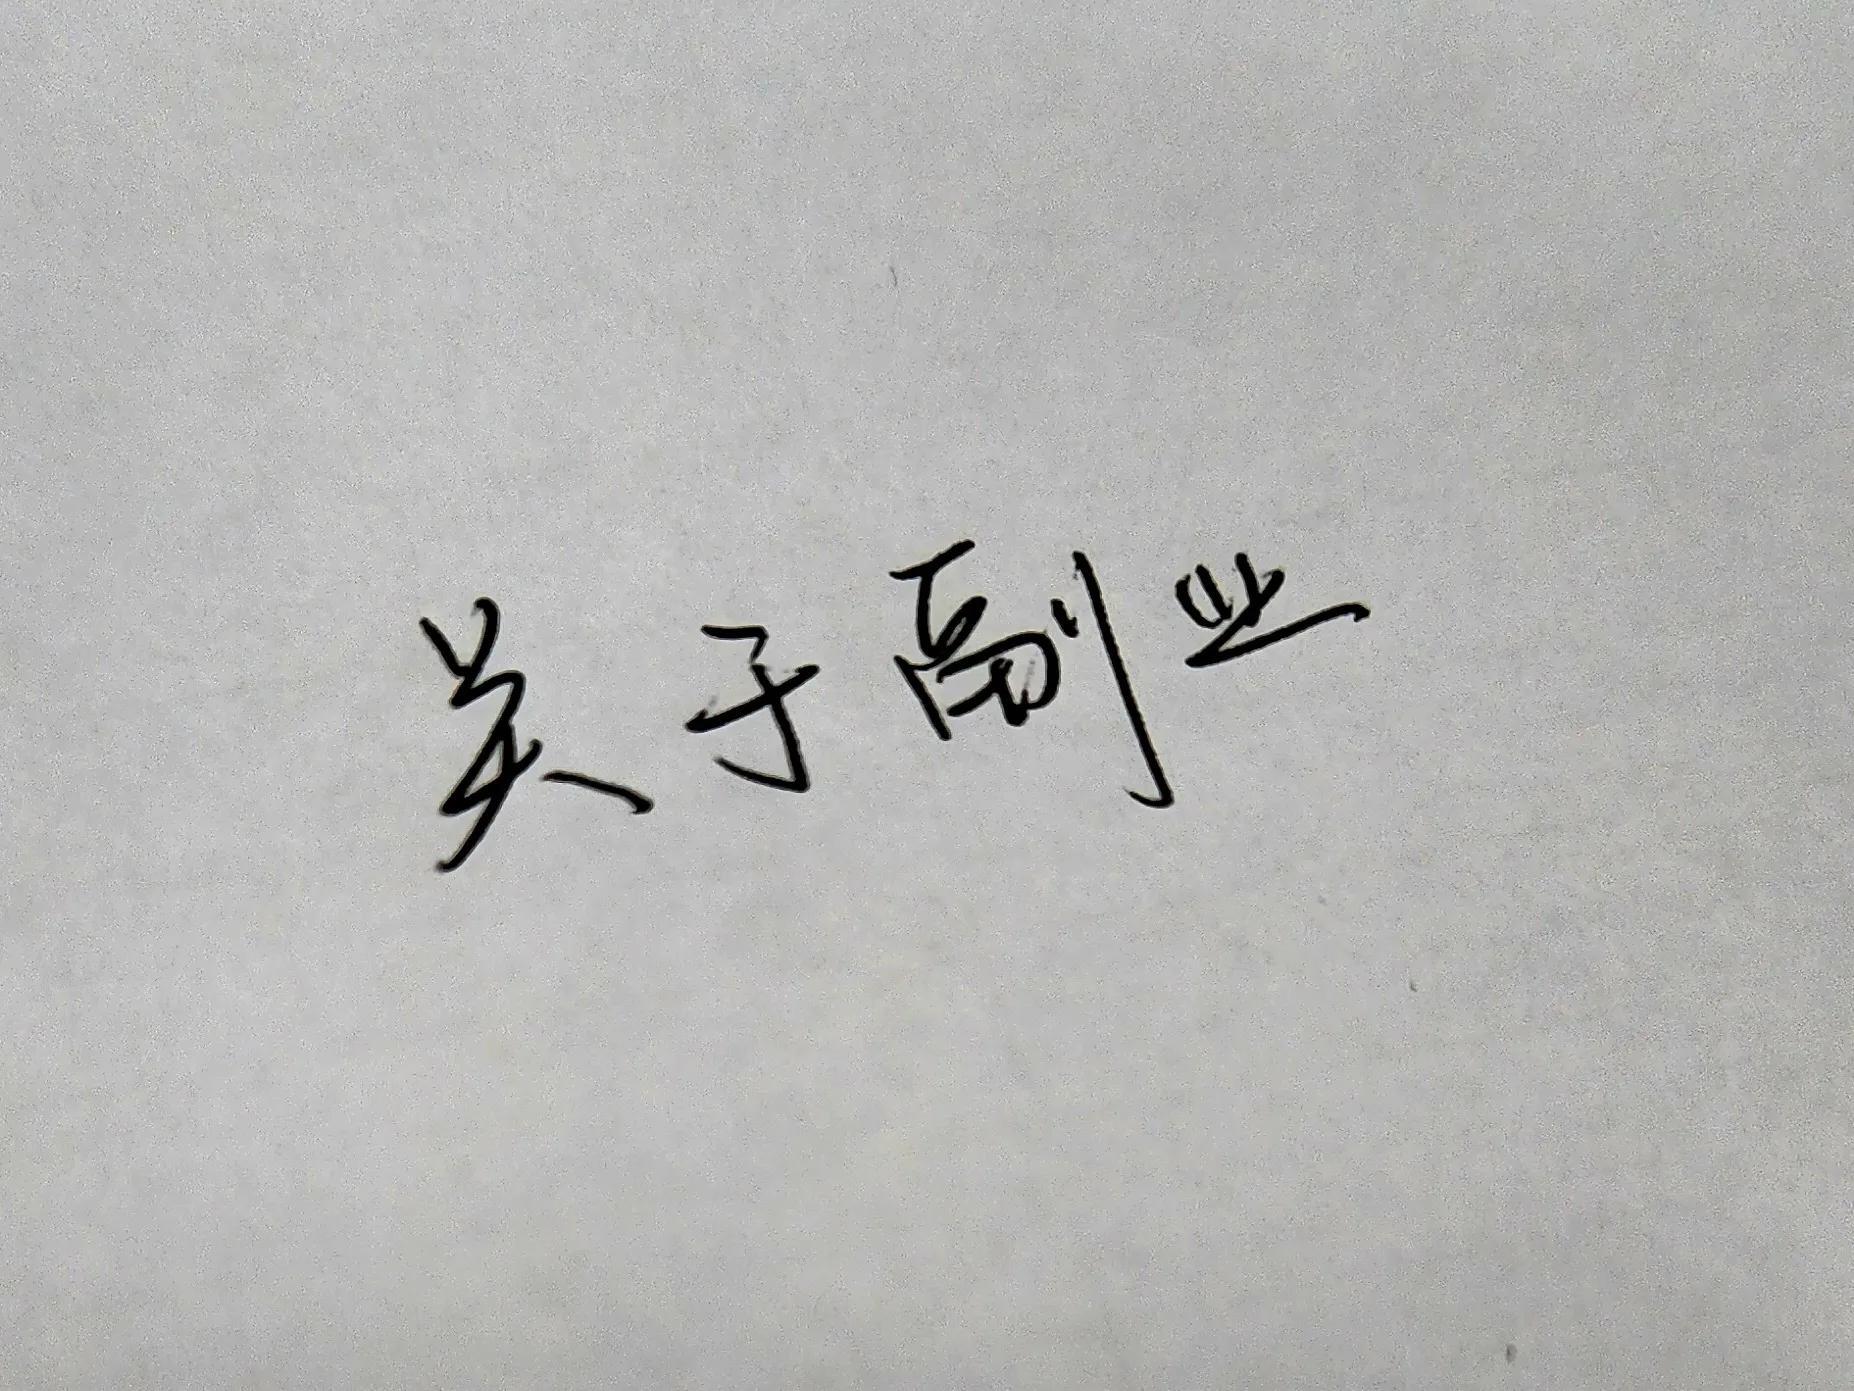 关于副业